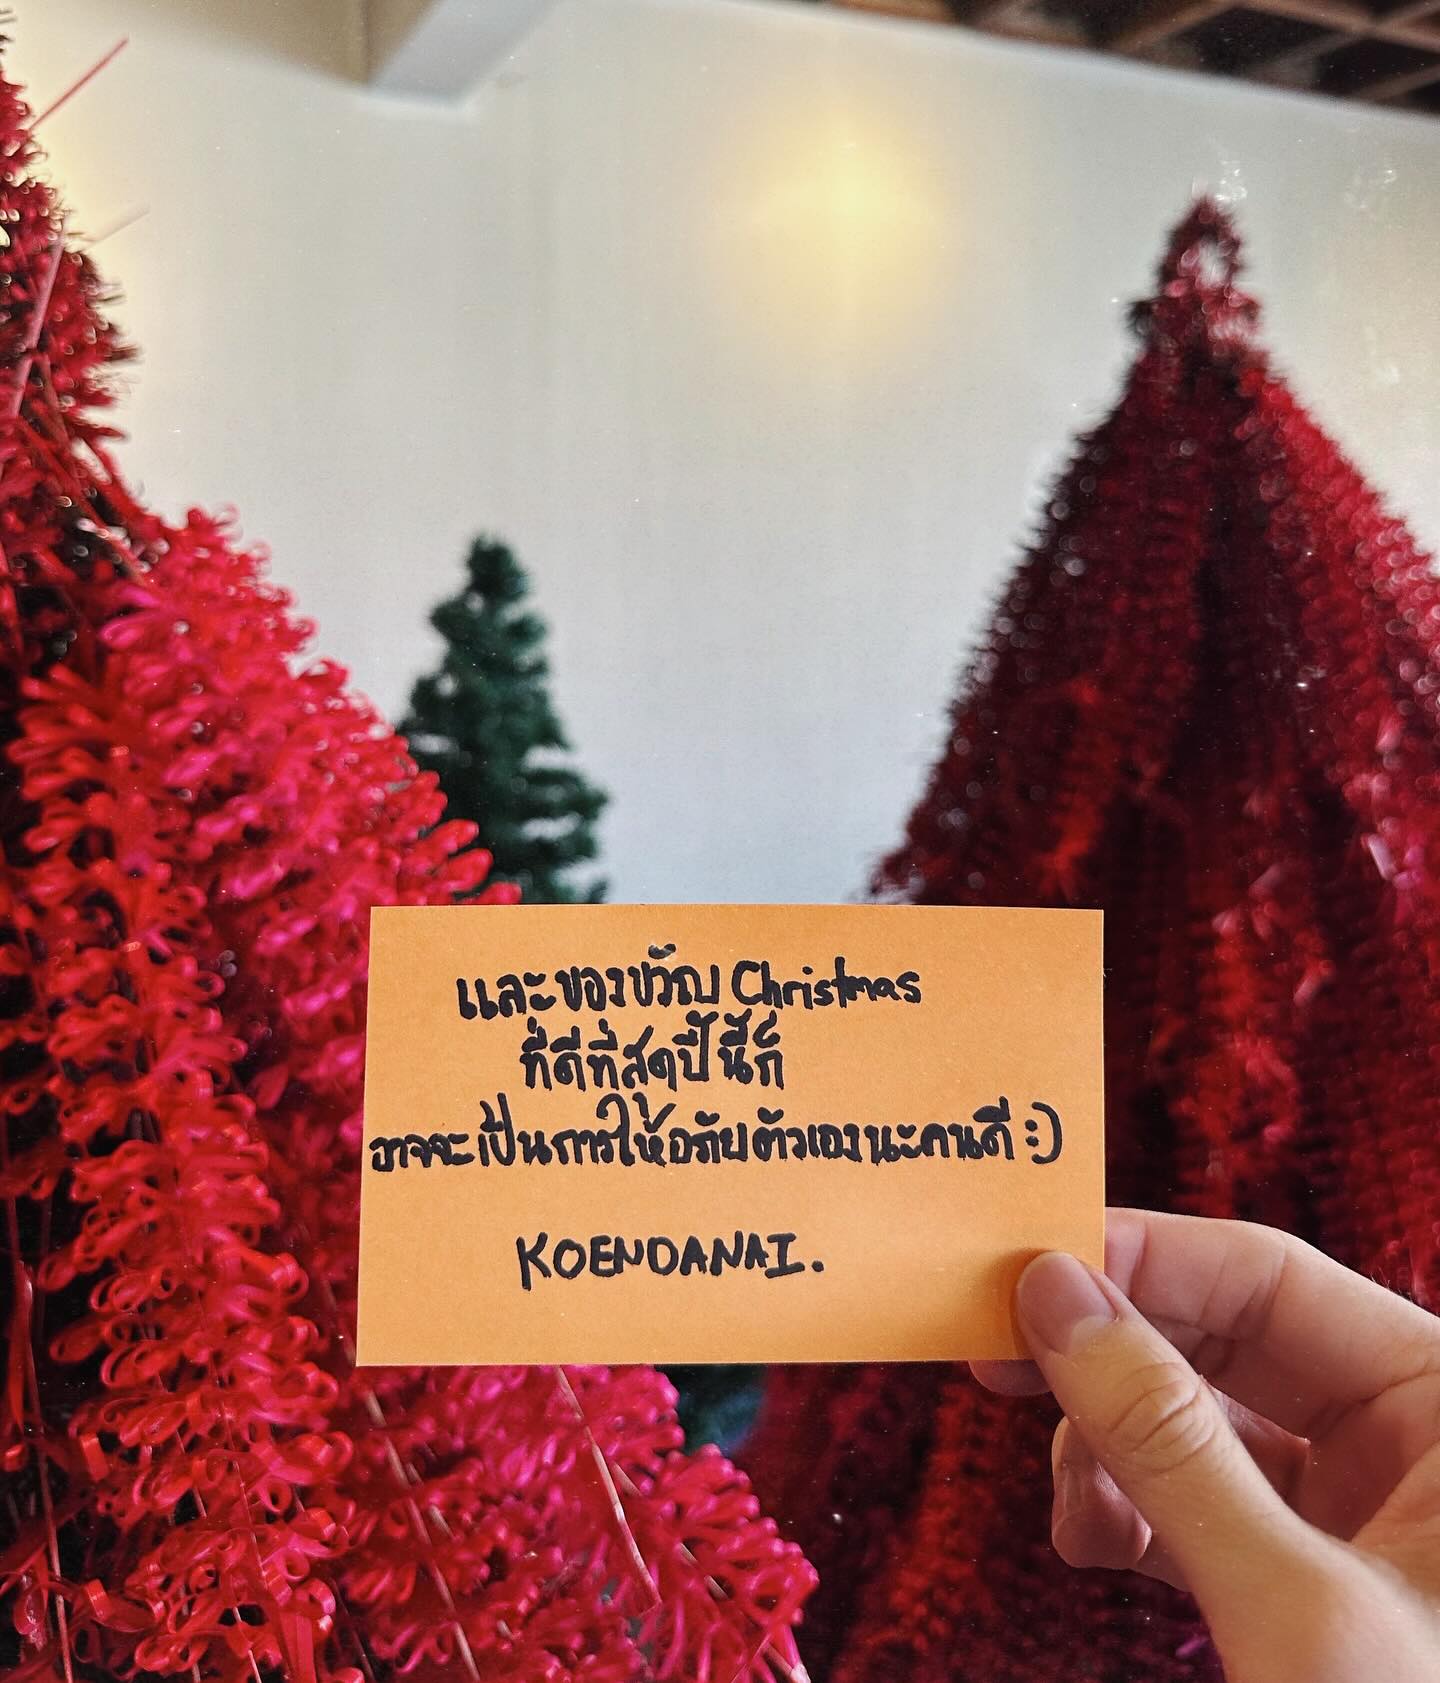 และของขวัญ Christmas
ที่ดีที่สุดปีนี้ก็
อาจจะเป็นการให้อภัยตัวเองนะคนดี :)
KOENDANAI.